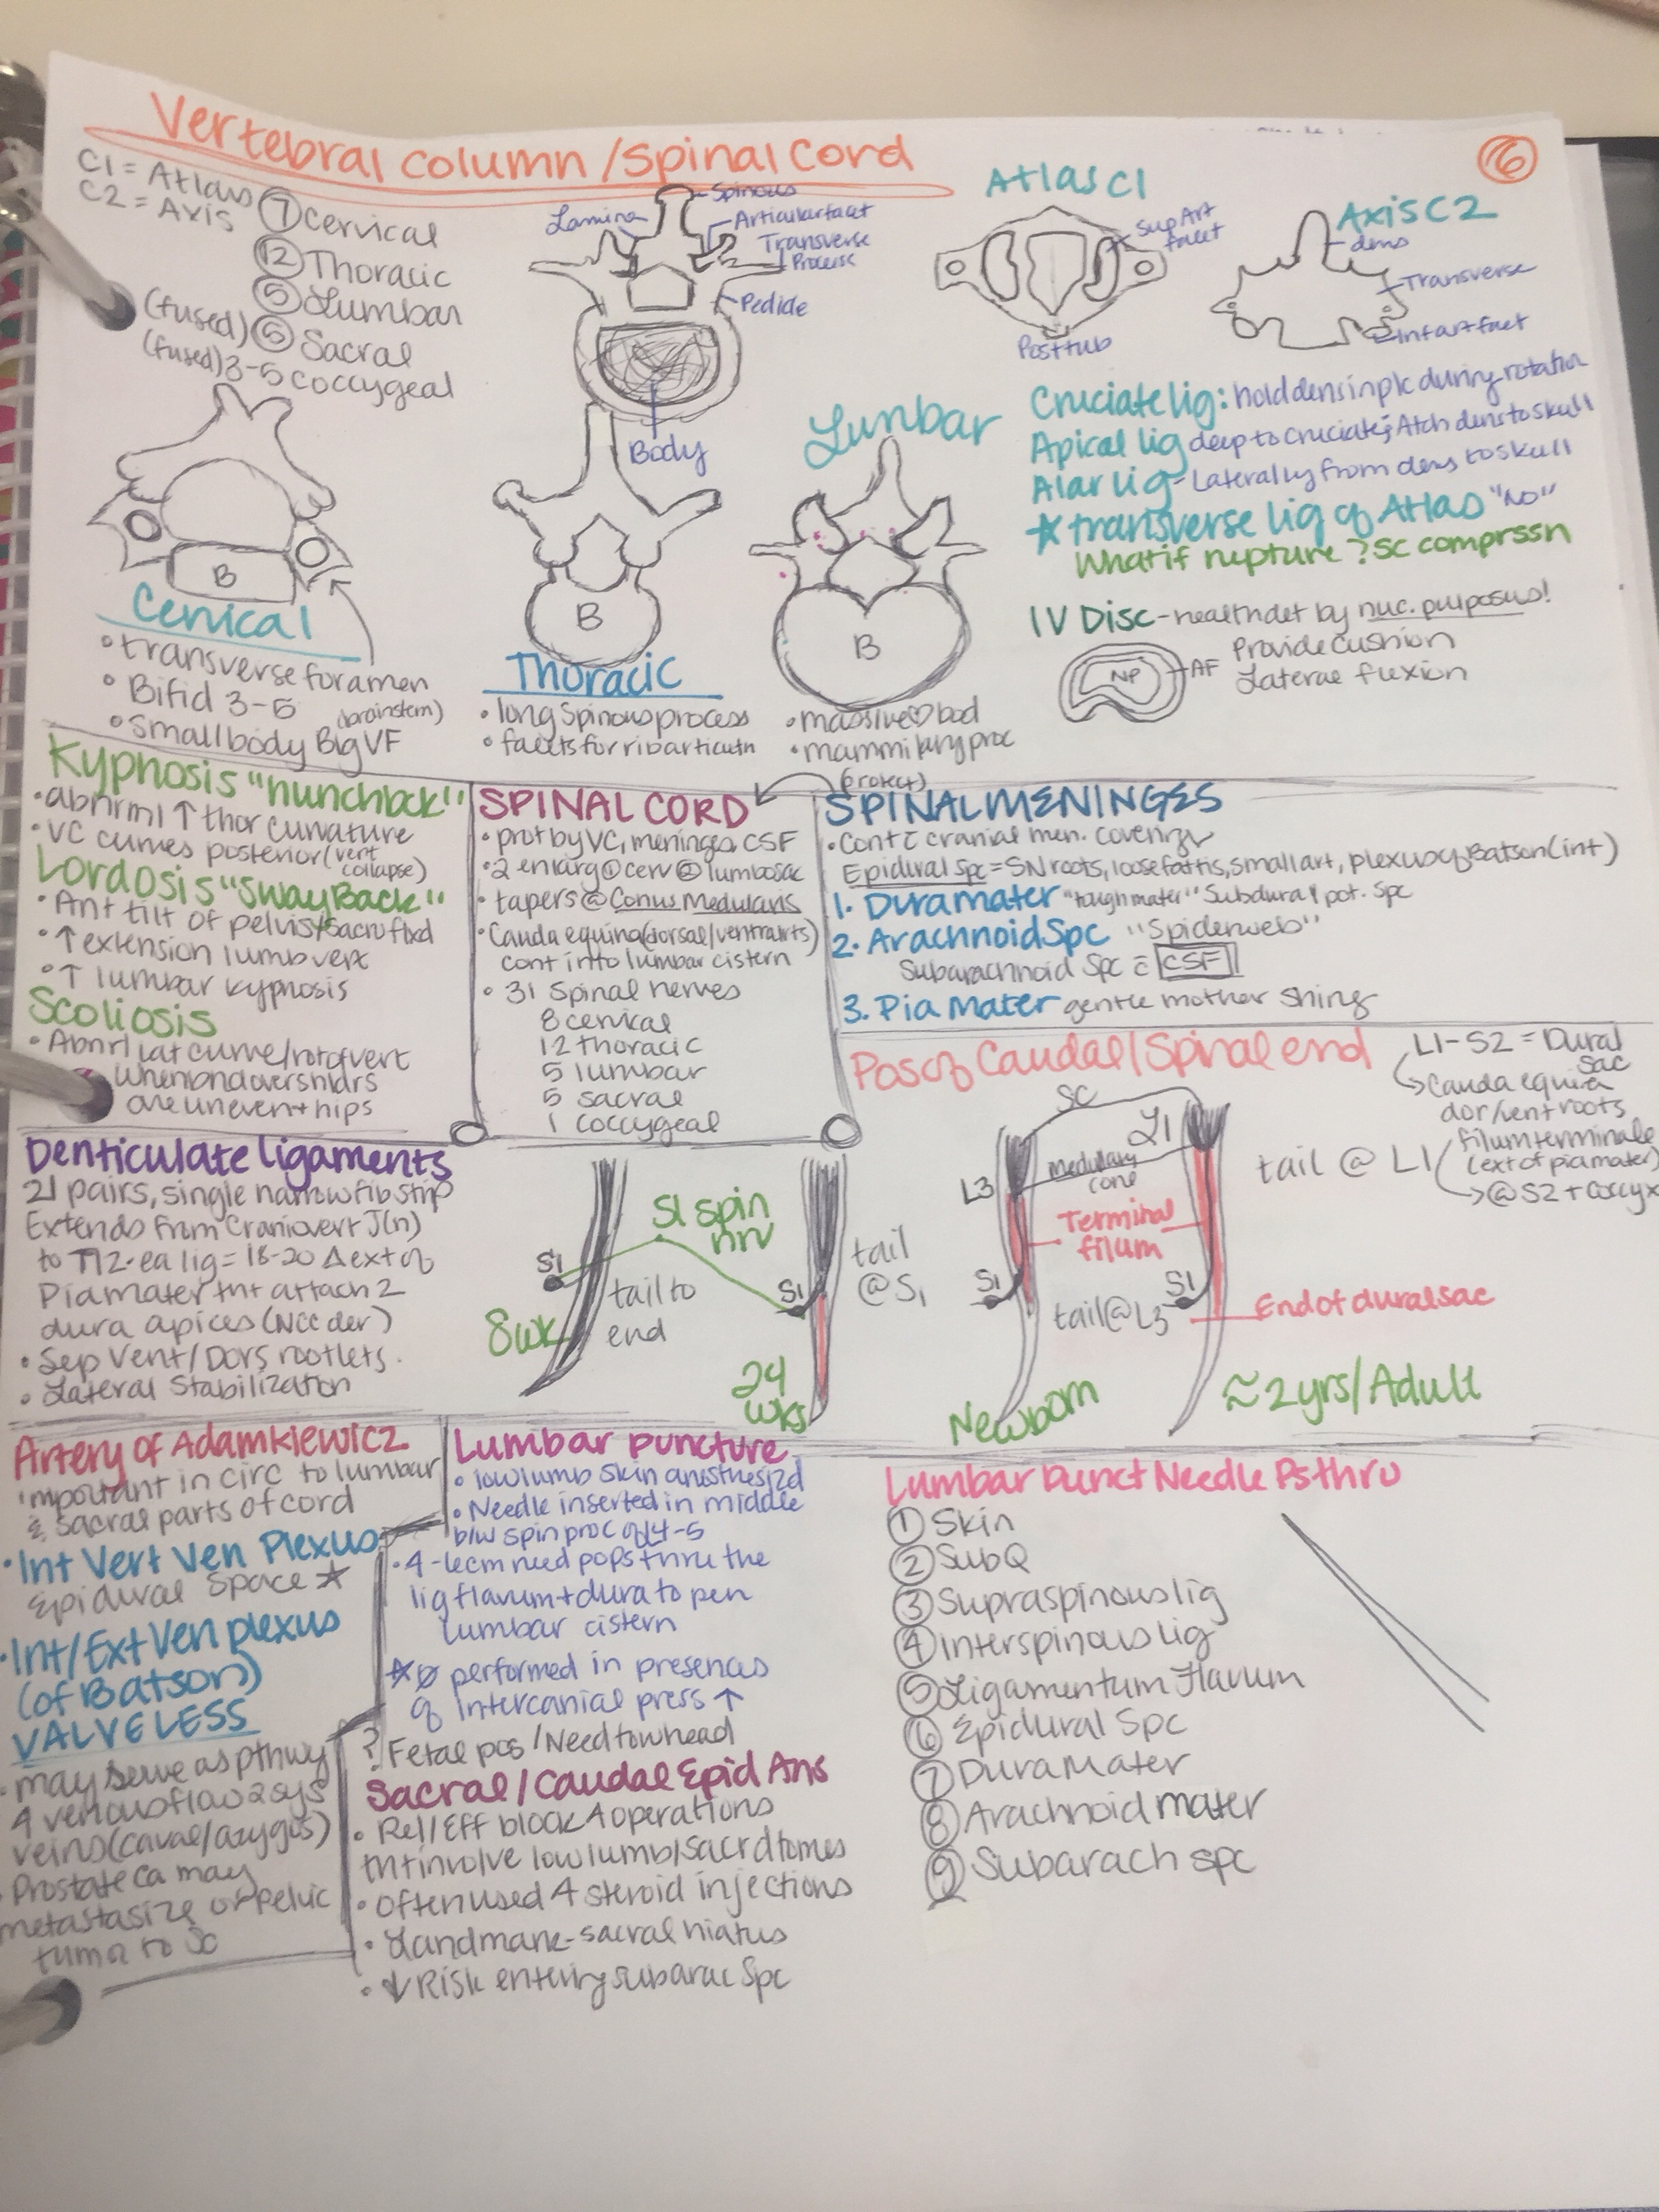 Vertebral column/Spinal Cord
6
C1 = Atlas
C2 = Axis
7 Cervical
12 Thoracic
5 Lumbar
(fused) 5 Sacral
(fused) 3-5 coccygeal
Lamina
Spinous
Articular facet
Transverse
Process
Pedide
Body
Atlas C1
Sup Art
facet
Post tub
Axis C2
dens
Transverse
Inf art facet
Cruciate lig: hold dens in plc during rotation
Apical lig deep to cruciate; Atch dens to skull
Alar lig - Laterally from dens to skull
☆ transverse lig of Atlas "NO"
What if rupture? SC comprssn
IV Disc - health det by nuc. pulposus!
NP
AF
Provide cushion
Laterae flexion
B
Cervical
• transverse foramen
• Bifid 3-5
(brainstem)
• small body Big VF
B
Thoracic
• long spinous process
• facets for rib articultn
Lumbar
B
• massive ♡ bod
• mammillary proc
Kyphosis "hunchbck"
• abnrml ↑ thor curvature
• VC curves posterior (vert
collapse)
Lordosis "SwayBack"
• Ant tilt of pelvis/sacru flxd
• ↑ extension lumb vert
• ↑ lumbar kyphosis
Scoliosis
• Abnrl lat curve/rot of vert
when bend over shldrs
are uneven + hips
(protect)
SPINAL CORD
• prot by VC, meninges, CSF
• 2 enlarg ① cerv ② lumbosac
• tapers @ Conus Medularis
• Cauda equina (dorsal/ventral rts)
cont into lumbar cistern
• 31 Spinal nerves
8 cervical
12 thoracic
5 lumbar
5 sacral
1 coccygeal
SPINAL MENINGES
• Cont c̄ cranial men. covering
Epidural Spc = SN roots, loose fat tis, small art, plexus of Batson (int)
1. Dura mater "tough mater" Subdural pot. Spc
2. Arachnoid Spc "Spiderweb"
Subarachnoid Spc c̄ CSF
3. Pia Mater gentle mother
Pos of Caudal/Spinal end
L1-S2 = Dural
sac
Cauda equina
dor/vent roots
filum terminale
(ext of pia mater)
@ S2 + coccyx
SC
L1
L3
Medulary
cone
tail @ L1
Terminal
filum
S1
S1
tail @ L3
End of dural sac
Newborn
≈2 yrs/Adult
S1 spin
nrv
S1
tail to
end
8 wk
S1
tail
@ S1
24
wks
Denticulate ligaments
21 pairs, single narrow fib strip
Extends from Craniovert J(n)
to T12. ea lig = 18-20 Δ ext of
Pia mater tht attach 2
dura apices (NCC der)
• Sep Vent/Dors rootlets.
• Lateral Stabilization
Artery of Adamkiewicz
important in circ to lumbar
& sacral parts of cord
• Int Vert Ven Plexus
Epidural Space ☆
• Int/Ext Ven plexus
(of Batson)
VALVELESS
• may serve as pthwy
4 venous flow 2 sys
veins (caval/azygos)
• Prostate ca may
metastasize or pelvic
tumor to SC
Lumbar puncture
• low lumb skin anesthesizd
• Needle inserted in middle
b/w spin proc of L4-5
• 4-6cm need pops thru the
lig flavum + dura to pen
lumbar cistern
☆ ø performed in presences
of Intercanial press ↑
? Fetal pos/Need tow head
Sacral/Caudal Epid Ans
• Rel/Eff block 4 operations
tht involve low lumb/sacr dtomes
• Often used 4 steroid injections
• Landmark - sacral hiatus
• ↓ Risk entering subarac Spc
Lumbar punct Needle Ps thru
1 Skin
2 SubQ
3 Supraspinous lig
4 Interspinous lig
5 Ligamentum Flavum
6 Epidural Spc
7 Dura Mater
8 Arachnoid mater
9 Subarach spc